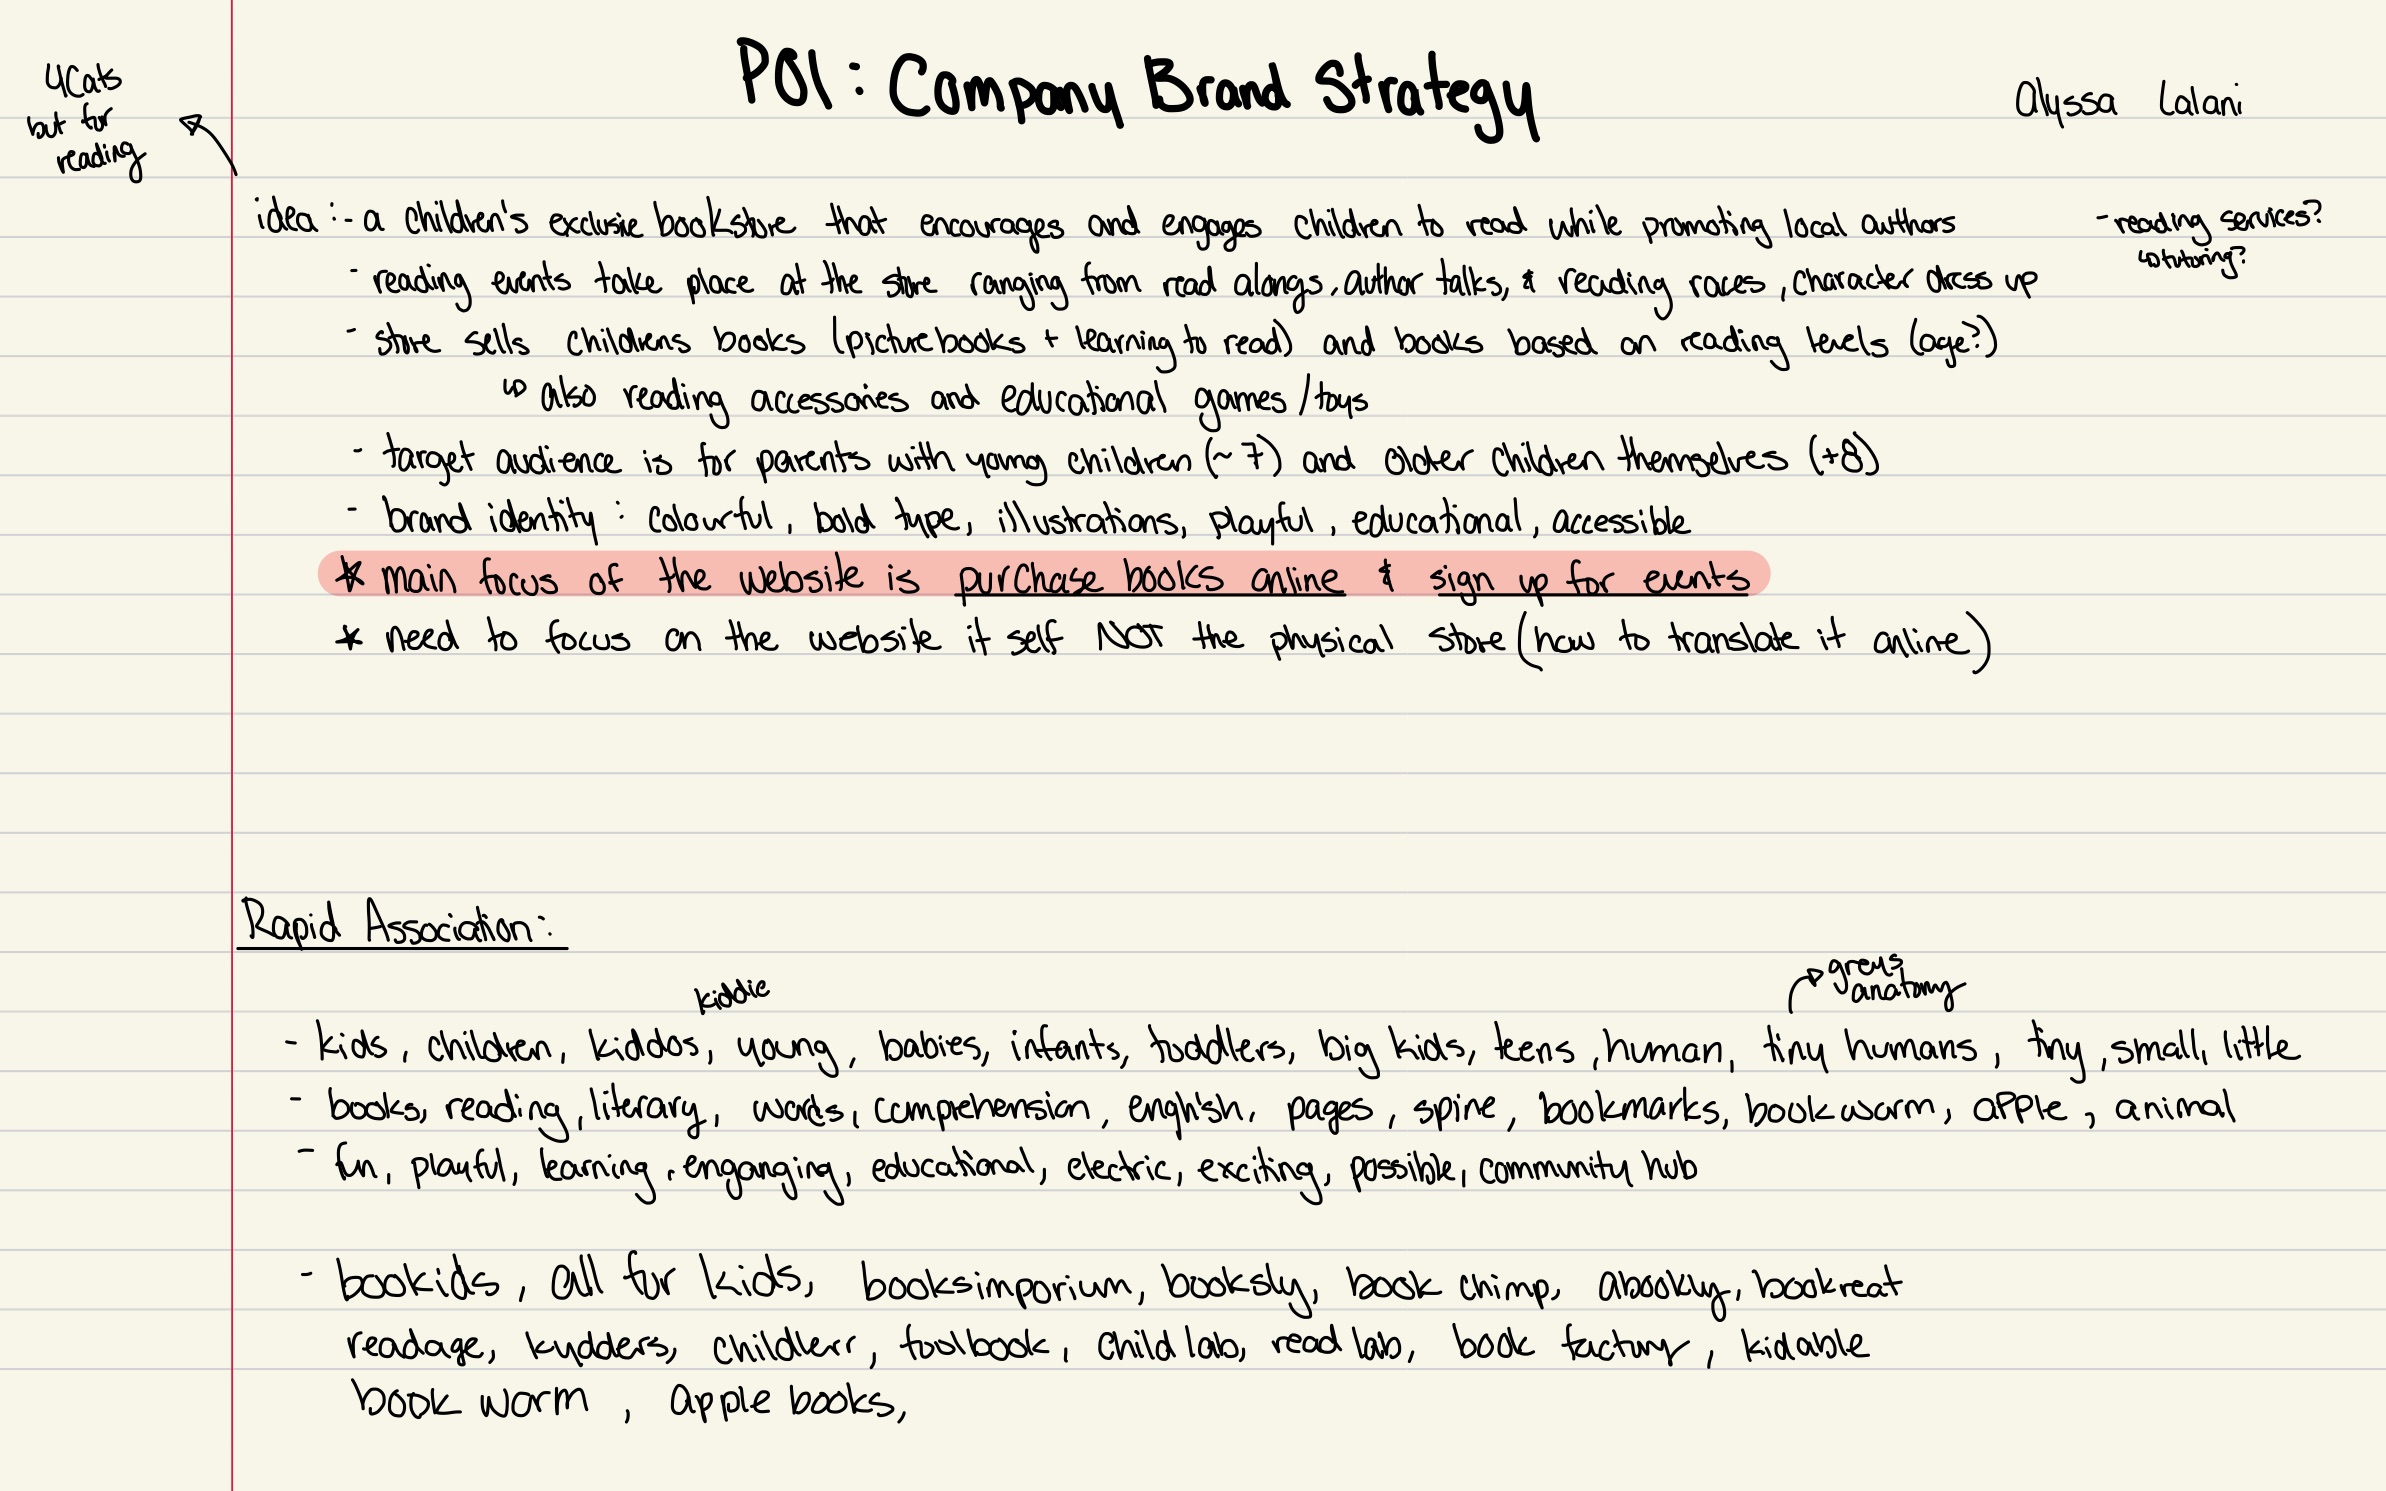 P01: Company Brand Strategy
Alyssa Lalani
4Cats
but for
reading
idea: - a children's exclusive bookstore that encourages and engages children to read while promoting local authors
- reading services?
↳ tutoring?
- reading events take place at the store ranging from read alongs, author talks, & reading races, character dress up
- store sells childrens books (picturebooks + learning to read) and books based on reading levels (age?)
↳ also reading accessories and educational games / toys
- target audience is for parents with young children (~7) and older children themselves (+8)
- brand identity: colourful, bold type, illustrations, playful, educational, accessible
* main focus of the website is purchase books online & sign up for events
* need to focus on the website it self NOT the physical store (how to translate it online)
Rapid Association:
kiddie
greys
anatomy
- kids, children, kiddos, young, babies, infants, toddlers, big kids, teens, human, tiny humans, tiny, small, little
- books, reading, literary, words, comprehension, english, pages, spine, bookmarks, bookworm, apple, animal
- fun, playful, learning, enganging, educational, electric, exciting, possible, community hub
- bookids, all for kids, booksimporium, booksly, book chimp, abookly, bookreat
readage, kydders, childlerr, toolbook, child lab, read lab, book factory, kidable
book worm, apple books,